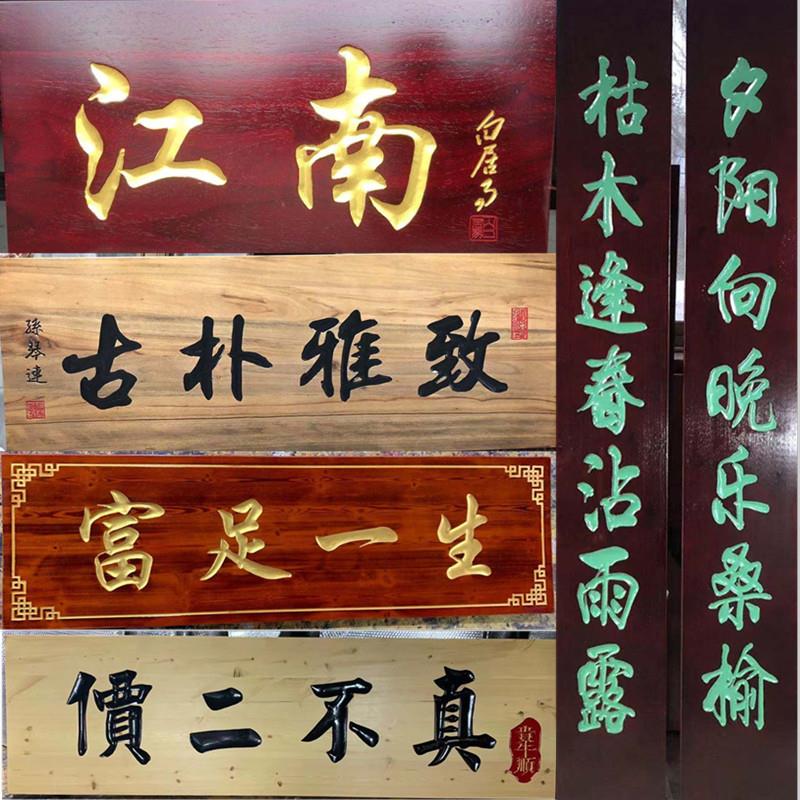 江南
白居易
古朴雅致
富足一生
真不二價
枯木逢春沾雨露
夕阳向晚乐桑榆